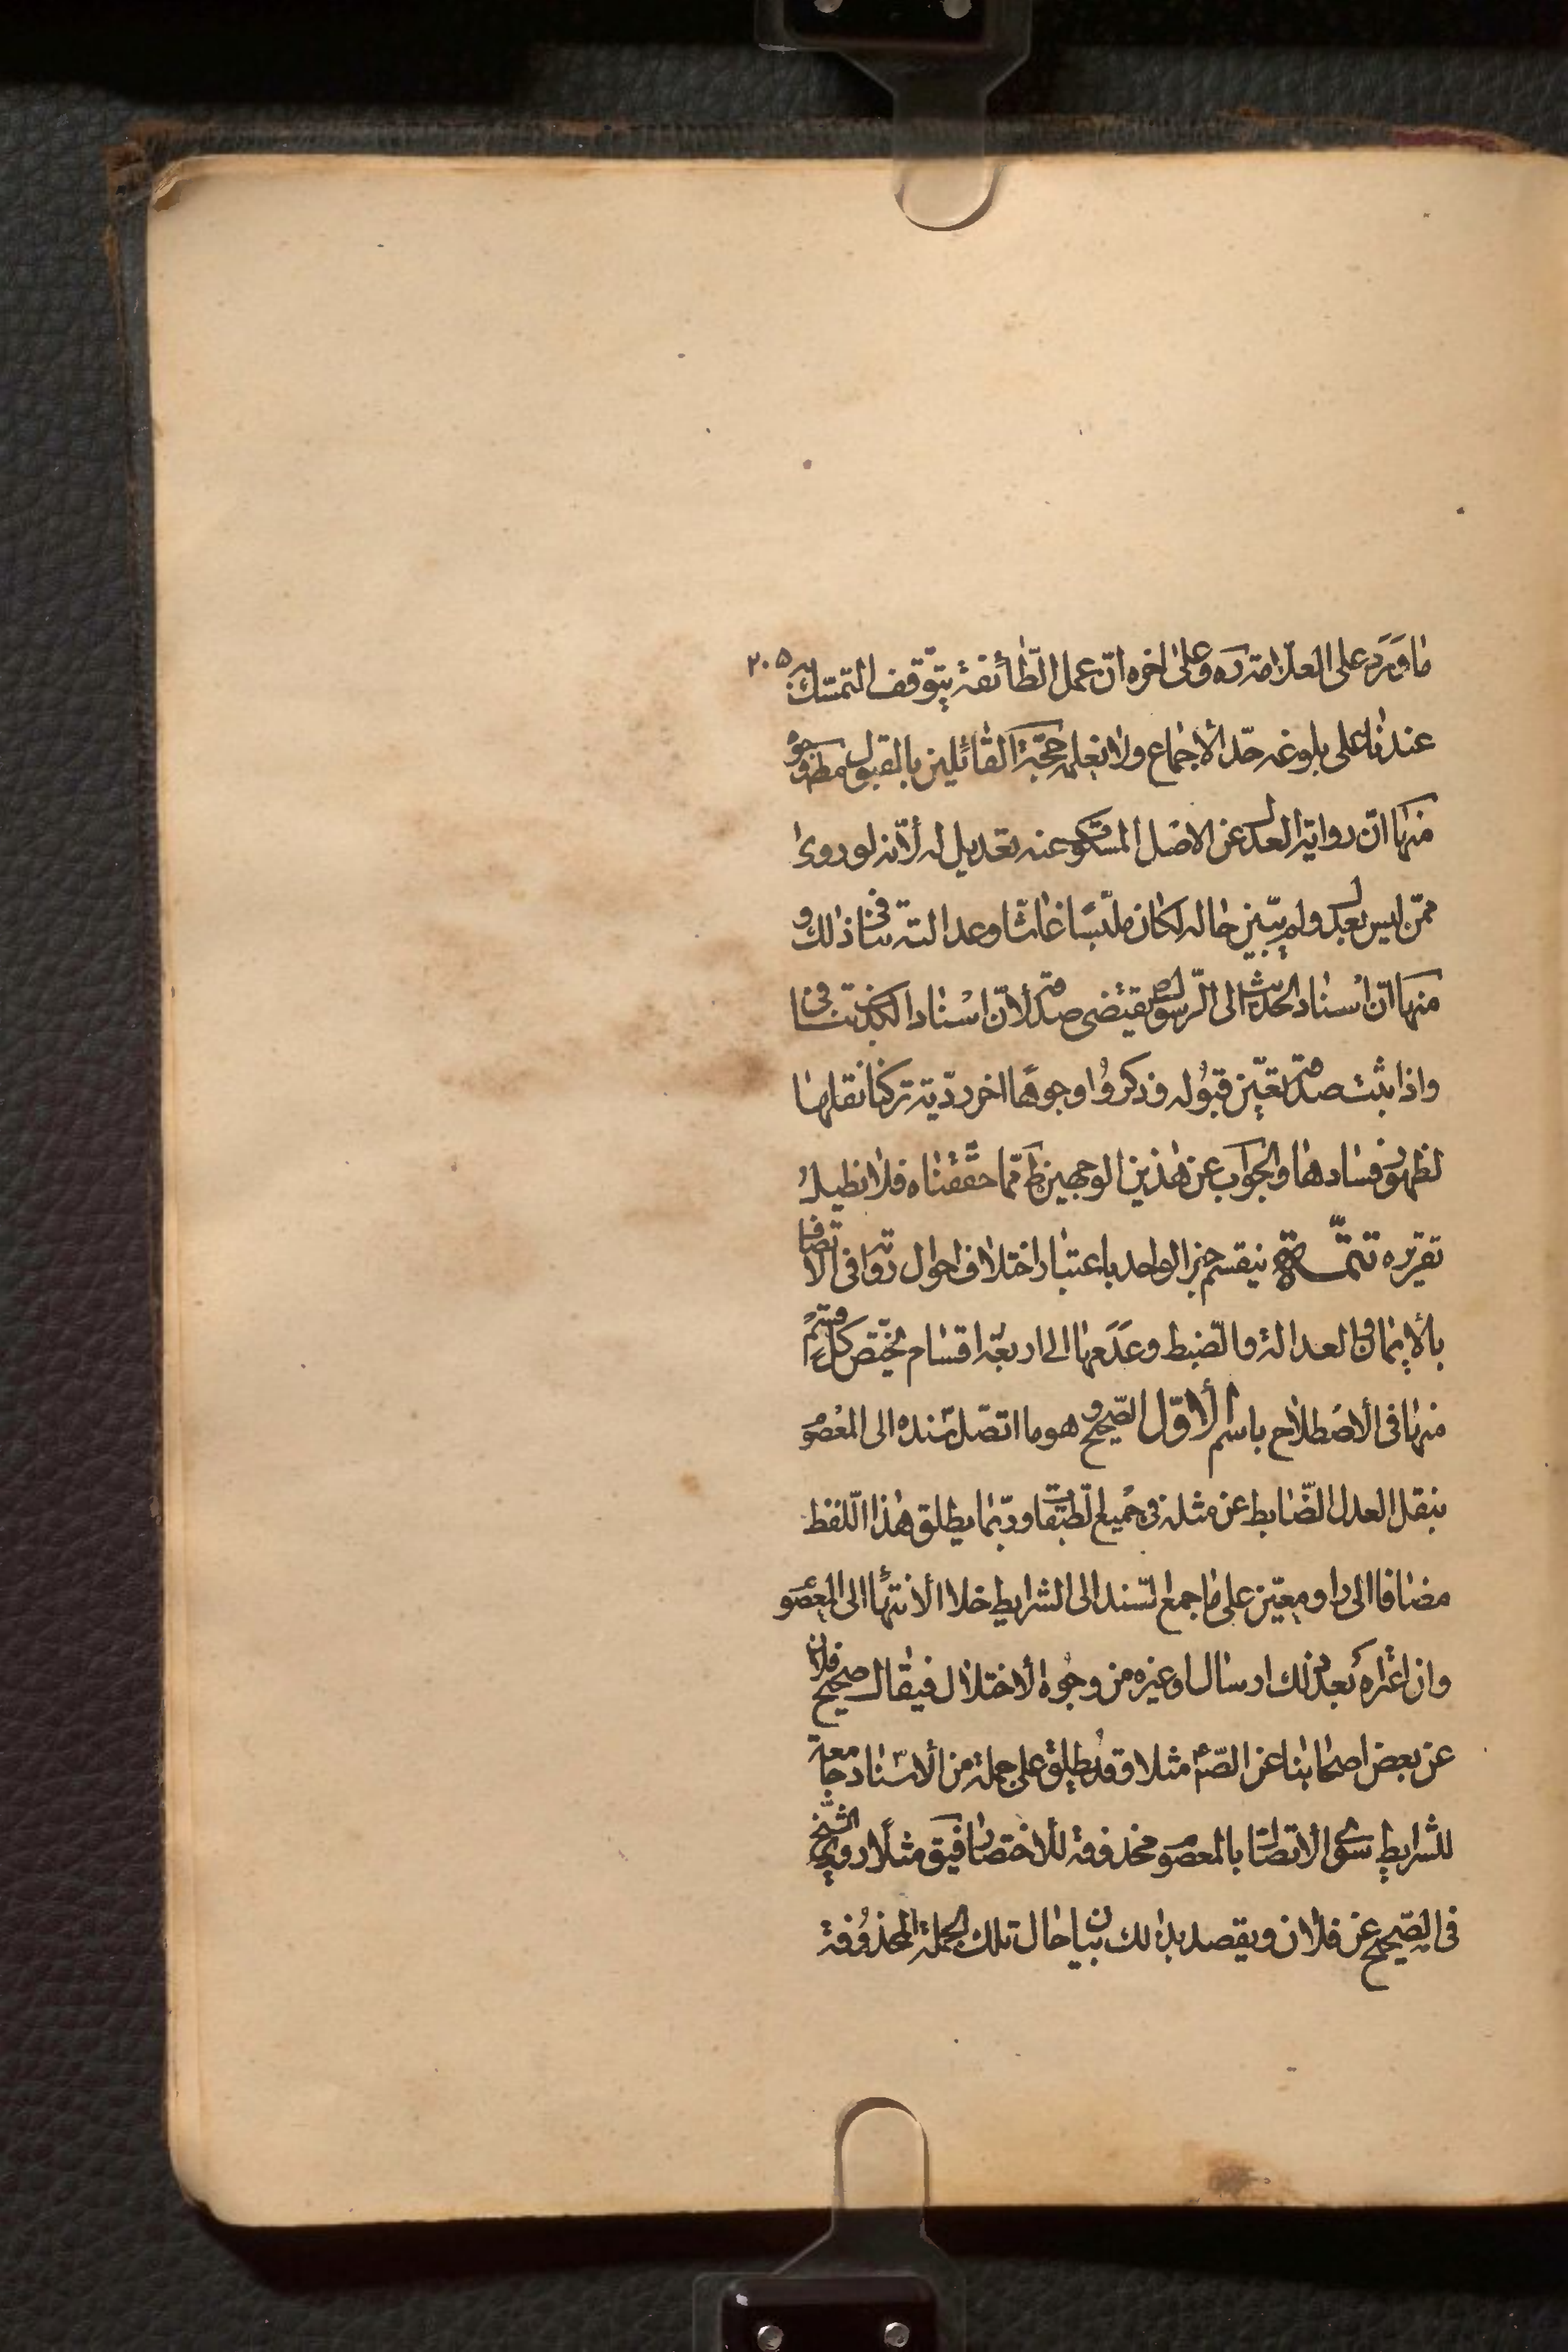 ما ورد على العلامة ره وعلى اخره انّ عمل الطّائفة يتوّقف التمسّك به ٢٠٥
عندنا على بلوغه حدّ الأجماع ولا نعلمه حجّة القائلين بالقبول مط وجوه
منها انّ رواية العدل عن الاصل المسكوت عنه تعديل له لأنّه لو روى
ممّن ليس بعدل ولم يبيّن حاله لكان ملبّسًا غاشّا وعدالته تنافى ذلك و
منها انّ اسناد الحديث الى الرّسول ص يقتضى صدقه لأنّ اسناد الكذب تنافى
واذا ثبت صدقه تعيّن قبوله وذكروا وجوهًا اخر رديّة تركنا نقلها
لظهور فسادها والجواب عن هذين الوجهين ظ ممّا حققناه فلا نطيل
تقريره تتمّة ينقسم خبر الواحد باعتبار اختلاف احوال رواته فى الاتصاف
بالأيمان والعدالة والضبط وعدمها الى اربعة اقسام يختصّ كلّ قسم
منها فى الأصطلاح باسم الأوّل الصّحيح و هو ما اتصّل سنده الى المعصوم
بنقل العدل الضّابط عن مثله فى جميع الطّبقات وربّما يطلق هذا اللّفظ
مضافا الى راو معيّن على ما جمع السّند الى الشرايط خلا الأنتهاء الى المعصوم
وان اعتراه بعد ذلك ارسال او غيره من وجوه الأختلال فيقال صحيح فلان
عن بعض اصحابنا عن الصّ ع مثلا وقد يطلق على جملة من الأسناد جامعة
للشرايط سوى الاتصال بالمعصوم محذوفة للأختصار فيق مثلًا روى الشّيخ
فى الصّحيح عن فلان ويقصد بذلك بيان حال تلك الجملة المحذوفة